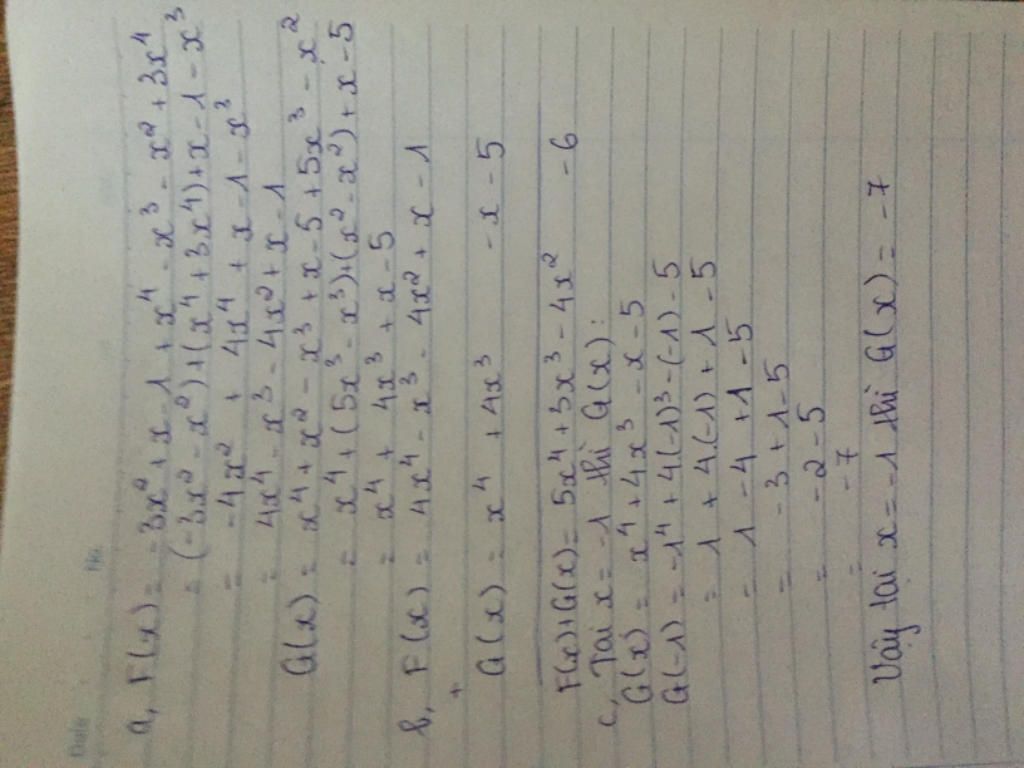 Date
No.
a, F(x) = -3x² + x - 1 + x⁴ - x³ - x² + 3x⁴
= (-3x² - x²) + (x⁴ + 3x⁴) + x - 1 - x³
= -4x² + 4x⁴ + x - 1 - x³
= 4x⁴ - x³ - 4x² + x - 1
G(x) = x⁴ + x² - x³ + x - 5 + 5x³ - x²
= x⁴ + (5x³ - x³) + (x² - x²) + x - 5
= x⁴ + 4x³ + x - 5
b, F(x) = 4x⁴ - x³ - 4x² + x - 1
+
G(x) = x⁴ + 4x³ - x - 5
F(x) + G(x) = 5x⁴ + 3x³ - 4x² - 6
c, Tại x = -1 thì G(x) :
G(x) = x⁴ + 4x³ - x - 5
G(-1) = -1⁴ + 4(-1)³ - (-1) - 5
= 1 + 4.(-1) + 1 - 5
= 1 - 4 + 1 - 5
= -3 + 1 - 5
= -2 - 5
= -7
Vậy tại x = -1 thì G(x) = -7